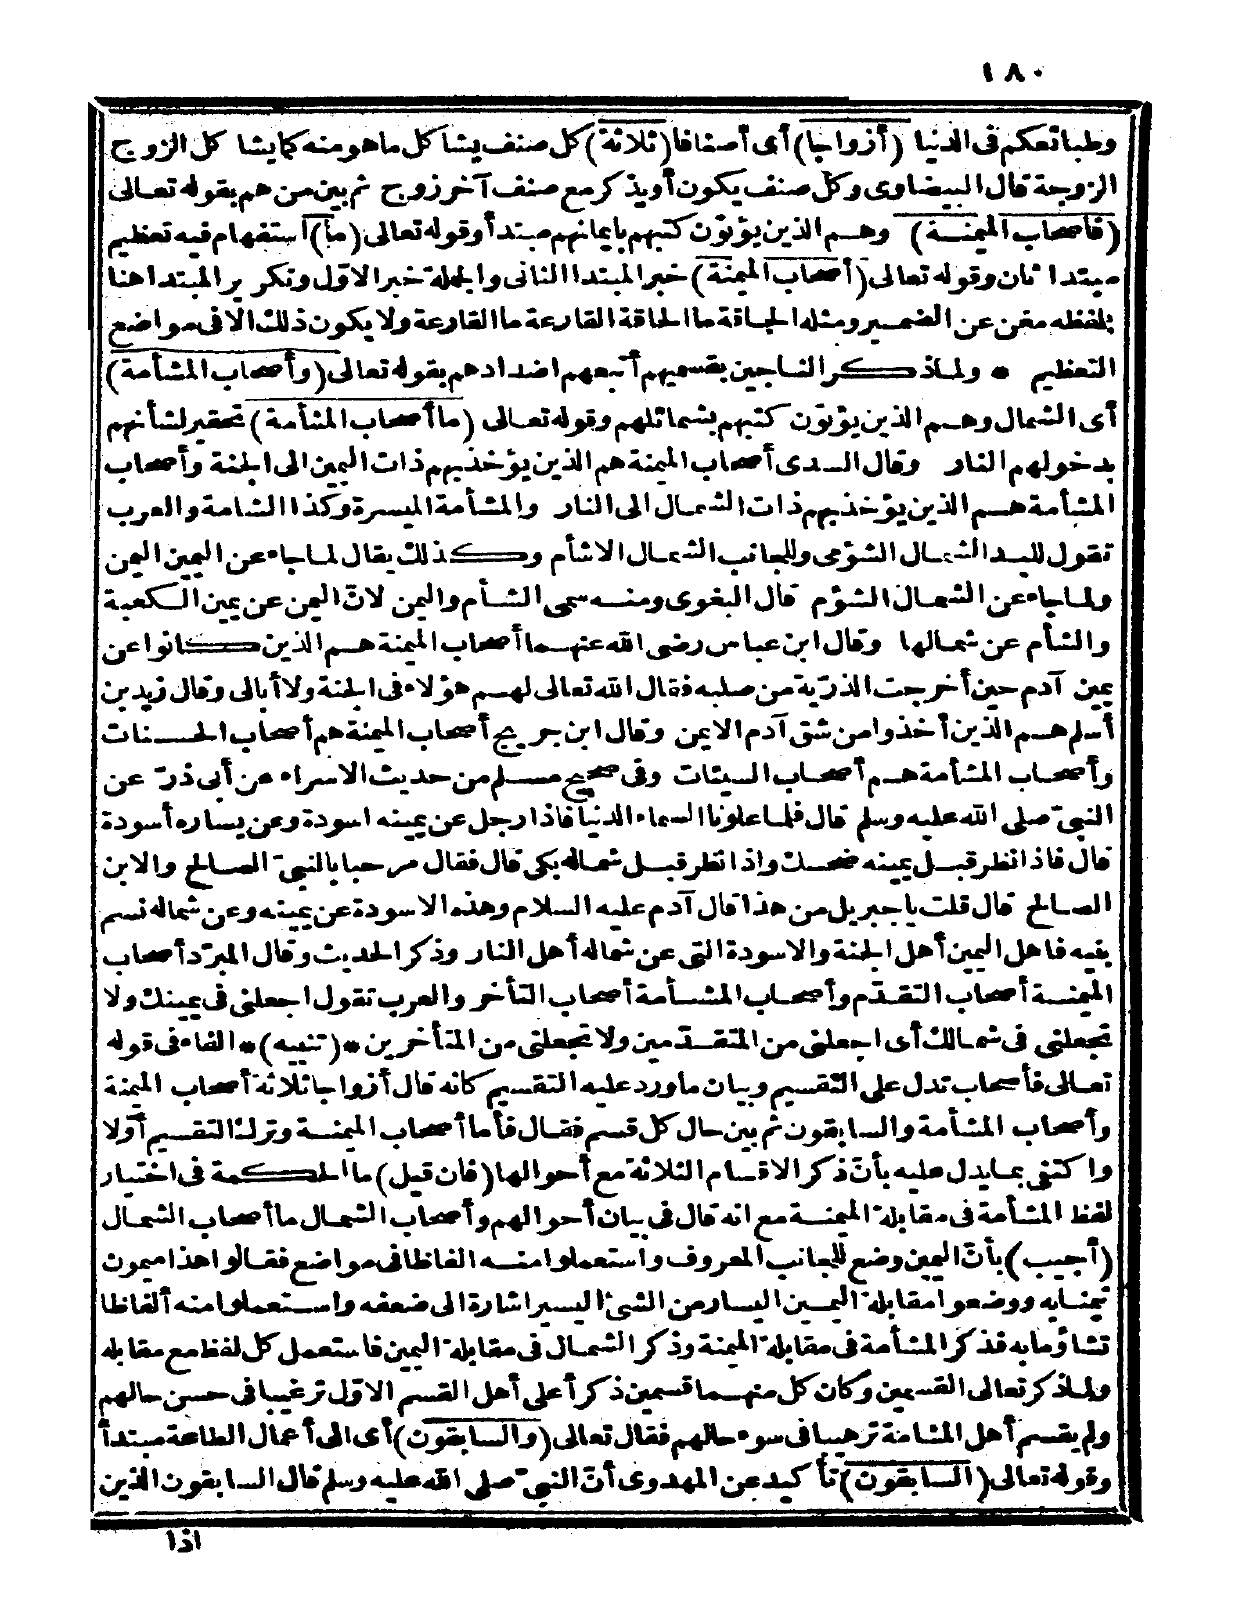 ١٨٠
وطباتعكم فى الدنيا (أزواجا) أى أصنافا (ثلاثة) كل صنف يشاكل ماهو منه كما يشا كل الزوج
الزوجة قال البيضاوى وكل صنف يكون أويذكر مع صنف آخر زوج ثم بين من هم بقوله تعالى
(فأصحاب الميمنة) وهم الذين يؤتون كتبهم بايمانهم مبتدأ وقوله تعالى (ما) استفهام فيه تعظيم
مبتدا ثان وقوله تعالى (أصحاب الميمنة) خبر المبتدا الثانى والجملة خبر الاوّل وتكرير المبتدا هنا
بلفظه مغن عن الضمير ومثله الحاقة ما الحاقة القارعة ما القارعة ولا يكون ذلك الا فى مواضع
التعظيم * ولما ذكر الناجين بقسميهم أتبعهم اضدادهم بقوله تعالى (وأصحاب المشأمة)
أى الشمال وهم الذين يؤتون كتبهم بشمائلهم وقوله تعالى (ما أصحاب المشأمة) تحقير لشأنهم
بدخولهم النار وقال السدى أصحاب الميمنة هم الذين يؤخذبهم ذات اليمين الى الجنة وأصحاب
المشأمة هم الذين يؤخذبهم ذات الشمال الى النار والمشأمة الميسرة وكذا الشامة والعرب
تقول لليد الشمال الشؤمى وللجانب الشمال الاشأم وكذلك يقال لما جاء عن اليمين اليمن
ولما جاء عن الشمال الشؤم قال البغوى ومنه سمى الشأم واليمن لانّ اليمن عن يمين الكعبة
والشأم عن شمالها وقال ابن عباس رضى الله عنهما أصحاب الميمنة هم الذين كانوا عن
يمين آدم حين أخرجت الذرّية من صلبه فقال الله تعالى لهم هؤلاء فى الجنة ولا أبالى وقال زيد بن
أسلم هم الذين أخذوا من شق آدم الايمن وقال ابن جريج أصحاب الميمنة هم أصحاب الحسنات
وأصحاب المشأمة هم أصحاب السيئات وفى صحيح مسلم من حديث الاسراء عن أبى ذرّ عن
النبىّ صلى الله عليه وسلم قال فلما علونا السماء الدنيا فاذا رجل عن يمينه اسودة وعن يساره أسودة
قال فاذا نظر قبل يمينه ضحك واذا نظر قبل شماله بكى قال فقال مرحبا بالنبىّ الصالح والابن
الصالح قال قلت يا جبريل من هذا قال آدم عليه السلام وهذه الاسودة عن يمينه وعن شماله نسم
بنيه فاهل اليمين أهل الجنة والاسودة التى عن شماله أهل النار وذكر الحديث وقال المبرّد أصحاب
الميمنة أصحاب التقدّم وأصحاب المشأمة أصحاب التأخر والعرب تقول اجعلنى فى يمينك ولا
تجعلنى فى شمالك أى اجعلنى من المتقدّمين ولا تجعلنى من المتأخرين *(تنبيه)* الفاء فى قوله
تعالى فأصحاب تدل على التقسيم وبيان ما ورد عليه التقسيم كانه قال أزواجا ثلاثة أصحاب الميمنة
وأصحاب المشأمة والسابقون ثم بين حال كل قسم فقال فأما أصحاب الميمنة وترك التقسيم أوّلا
واكتفى بما يدل عليه بأنّ ذكر الاقسام الثلاثة مع أحوالها (فان قيل) ما الحكمة فى اختيار
لفظ المشأمة فى مقابلة الميمنة مع انه قال فى بيان أحوالهم وأصحاب الشمال ما أصحاب الشمال
(أجيب) بأنّ اليمين وضع للجانب المعروف واستعملوا منه الفاظا فى مواضع فقالوا هذا ميمون
تيمنا به ووضعوا مقابلة اليمين اليسار من الشئ اليسير اشارة الى ضعفه واستعملوا منه ألفاظا
تشاؤما به فذكر المشأمة فى مقابلة الميمنة وذكر الشمال فى مقابلة اليمين فاستعمل كل لفظ مع مقابله
ولما ذكر تعالى القسمين وكان كل منهما قسمين ذكر أعلى أهل القسم الاوّل ترغيبا فى حسن حالهم
ولم يقسم أهل المشامة ترهيبا فى سوء حالهم فقال تعالى (والسابقون) أى الى أعمال الطاعة مبتدأ
وقوله تعالى (السابقون) تأكيد عن المهدوى أنّ النبىّ صلى الله عليه وسلم قال السابقون الذين
اذا